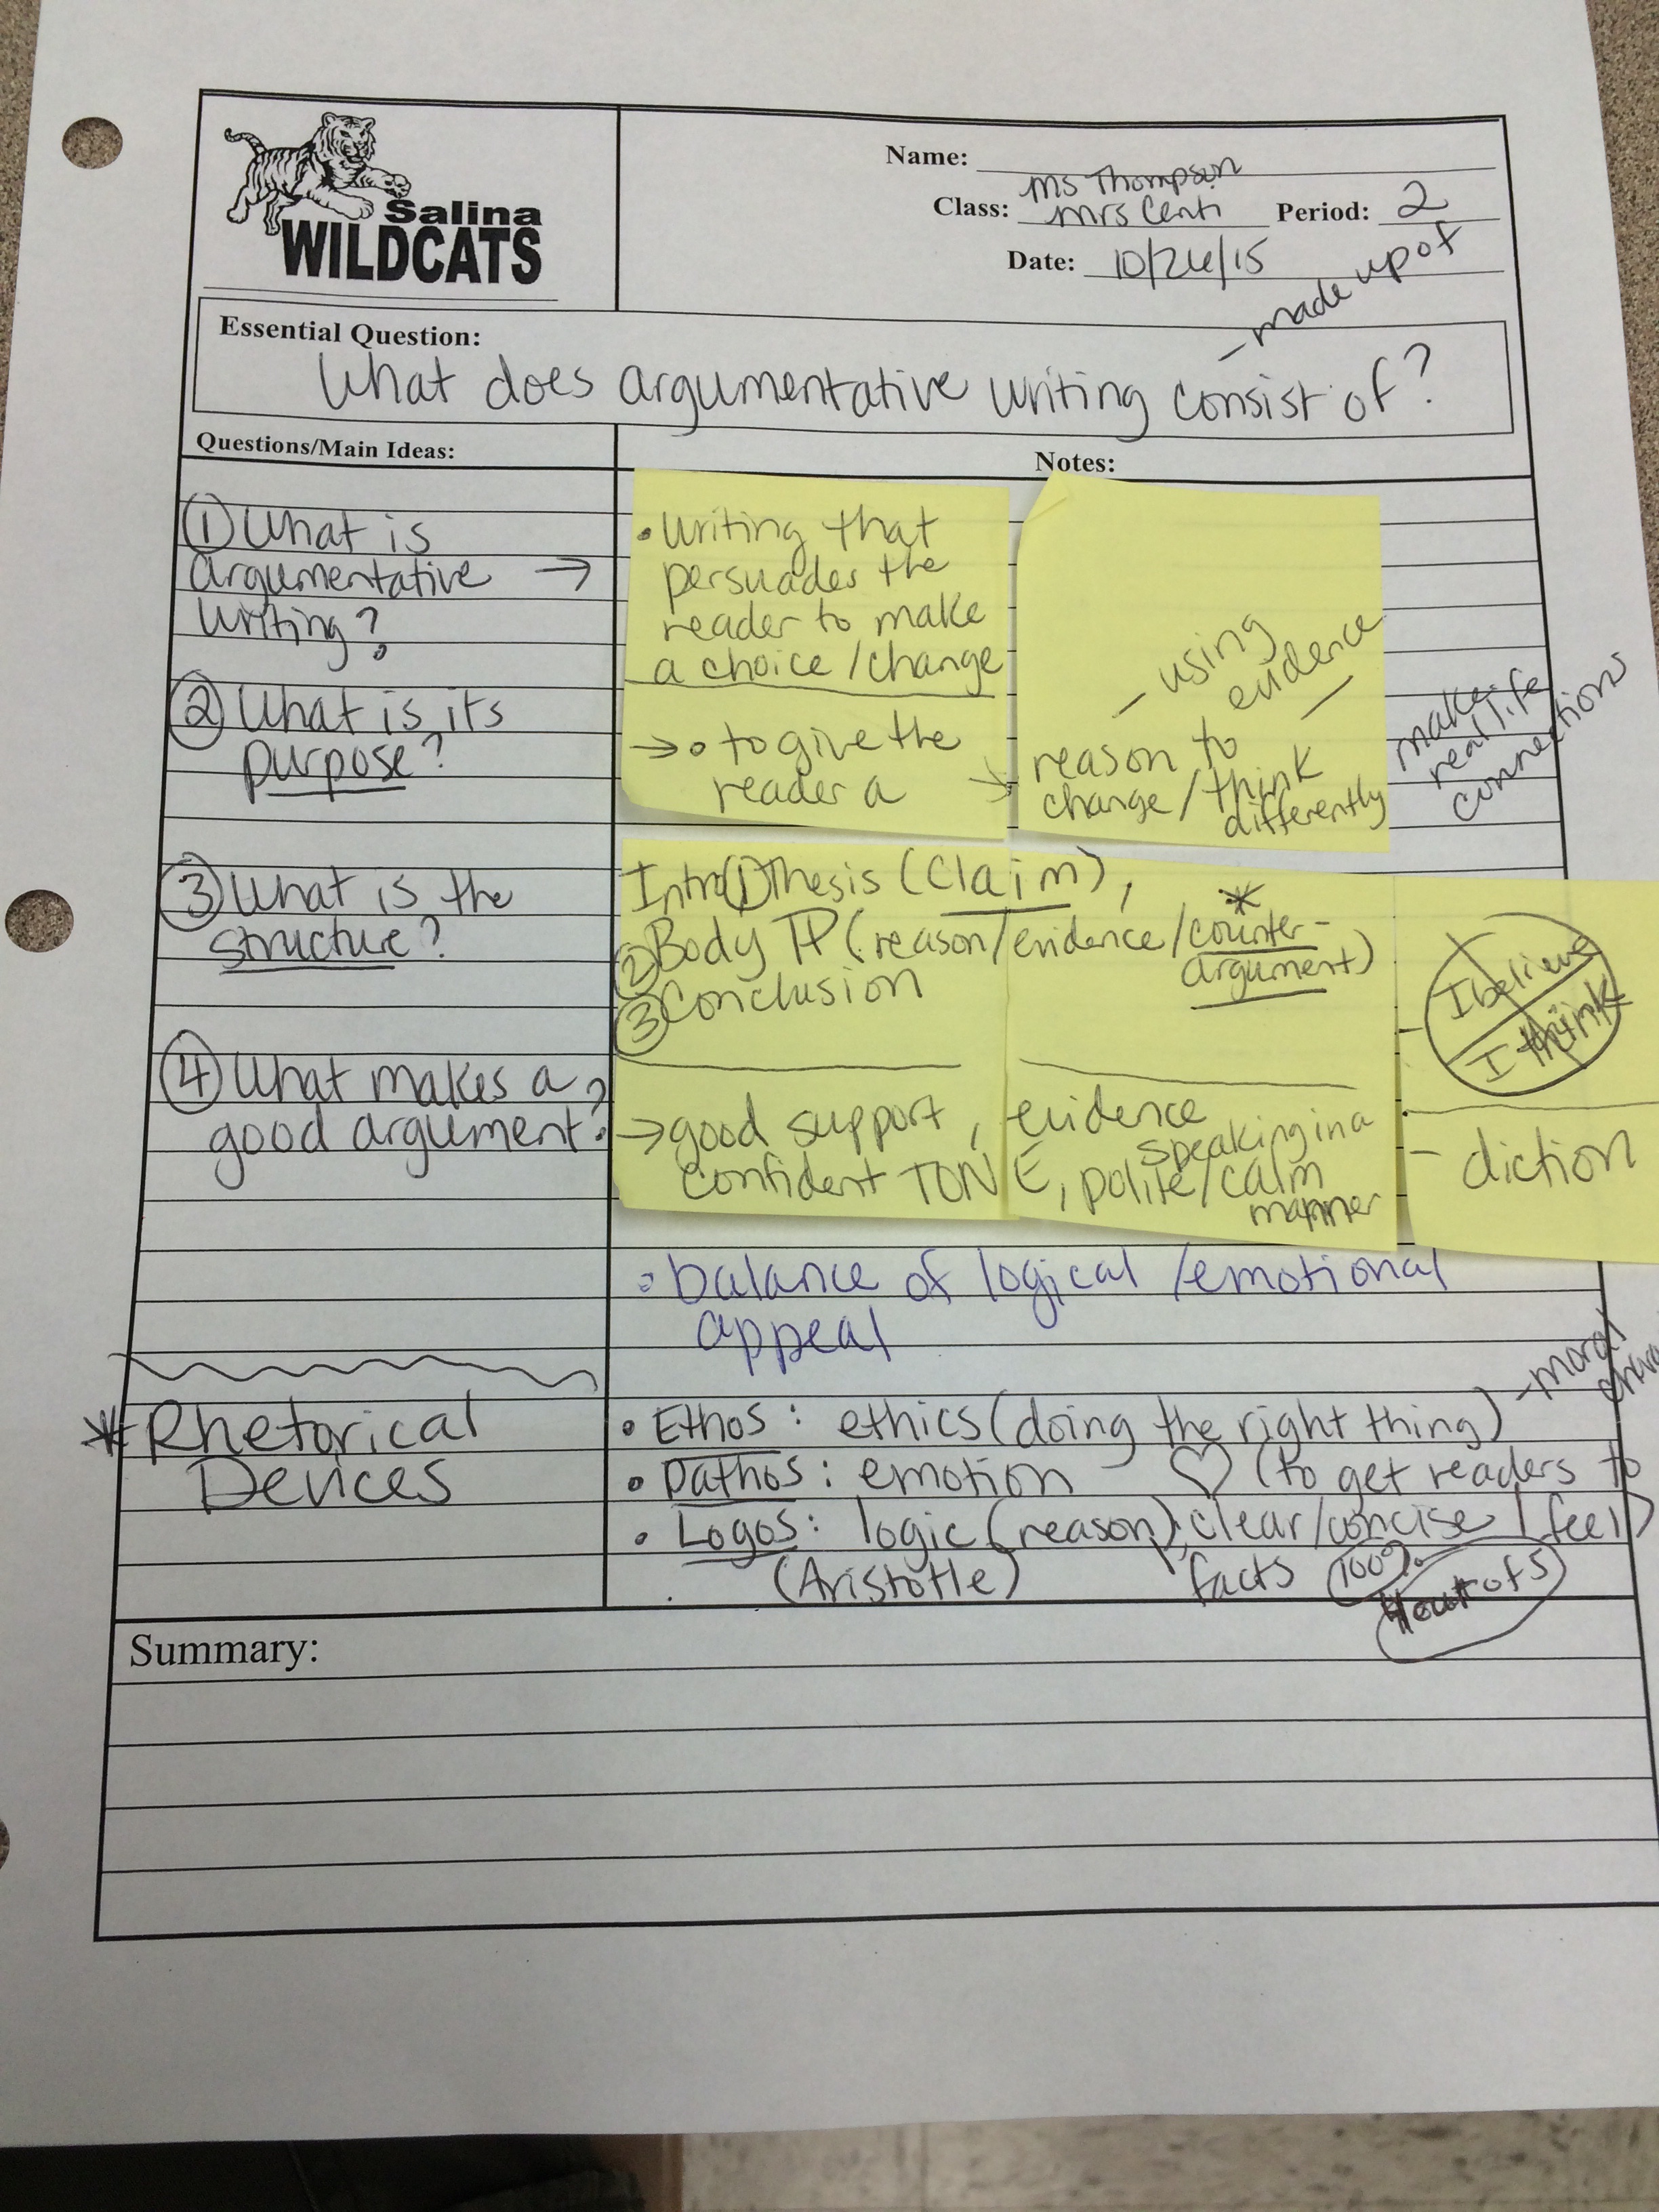 Salina
WILDCATS
Name:
Ms Thompson
Class: Mrs Centi Period: 2
Date: 10/26/15
- made up of
Essential Question:
What does argumentative writing consist of?
Questions/Main Ideas:
Notes:
① What is
argumentative →
writing?
• writing that
persuades the
reader to make
a choice/change
- using
evidence -
② What is its
purpose?
→ • to give the
reader a →
reason to
change/think
differently
make
real life
connections
③ What is the
structure?
Intro ① Thesis (Claim),
② Body ¶ (reason/evidence/counter-
argument)
③ Conclusion
I believe
I think
④ What makes a
good argument?
→ good support, evidence
confident TONE, polite/calm
speaking in a
manner
- diction
• balance of logical/emotional
appeal
* Rhetorical
Devices
• Ethos: ethics (doing the right thing)
- moral
• Pathos: emotion ♡ (to get readers to
feel)
• Logos: logic (reason), clear/concise
(Aristotle) facts 100%
4 out of 5
Summary: